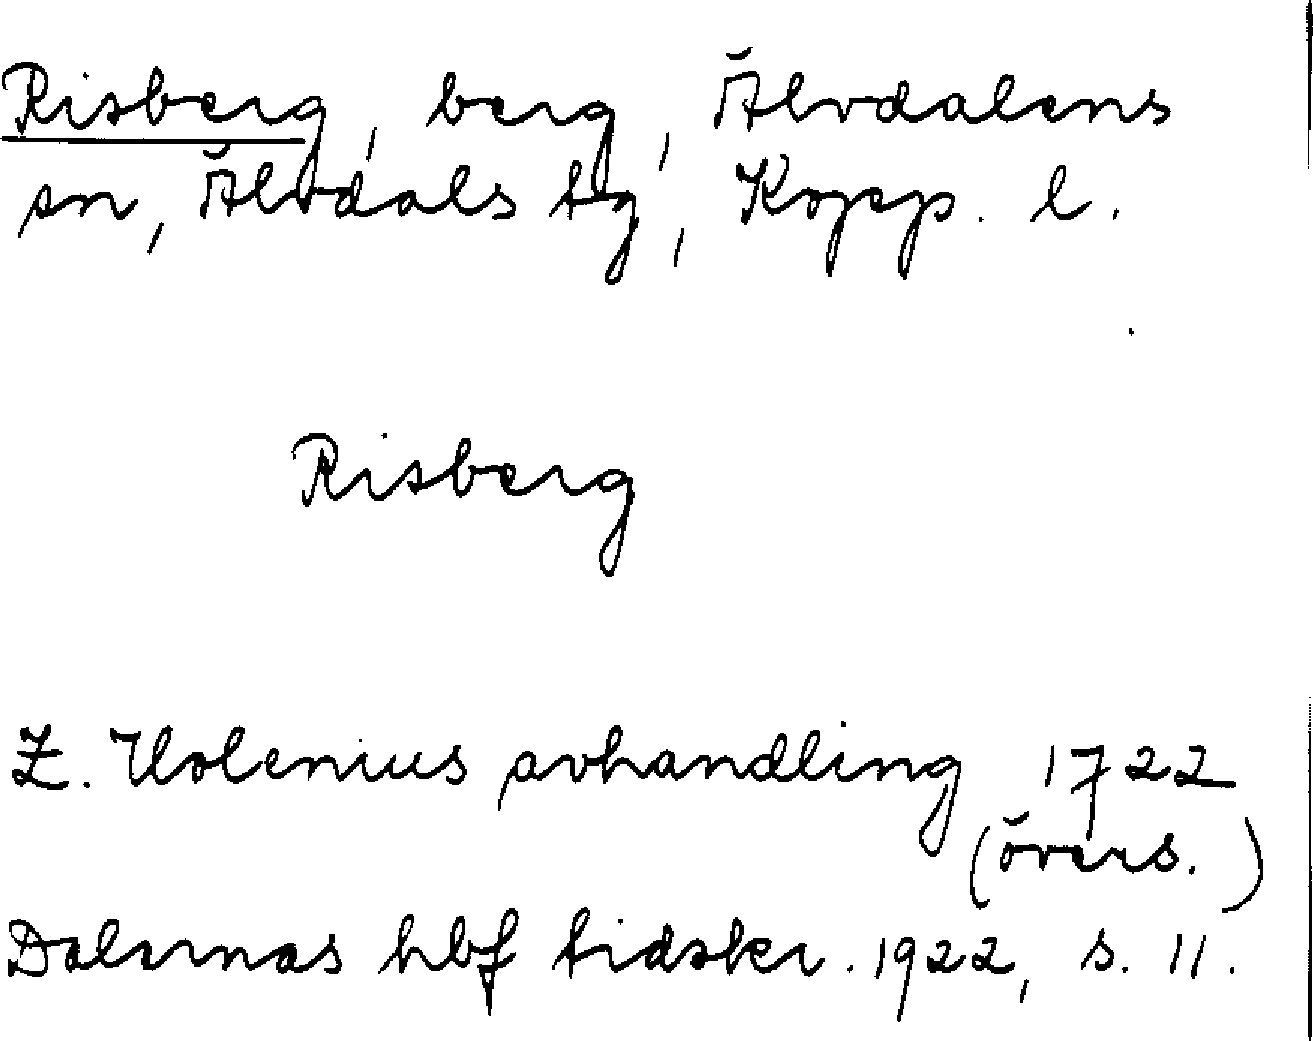 Risberg, berg, Älvdalens
sn, Älvdals tg, Kopp. l.
Risberg
Z. Holenius avhandling 1722
(övers.)
Dalarnas hbf tidskr. 1922, s. 11.